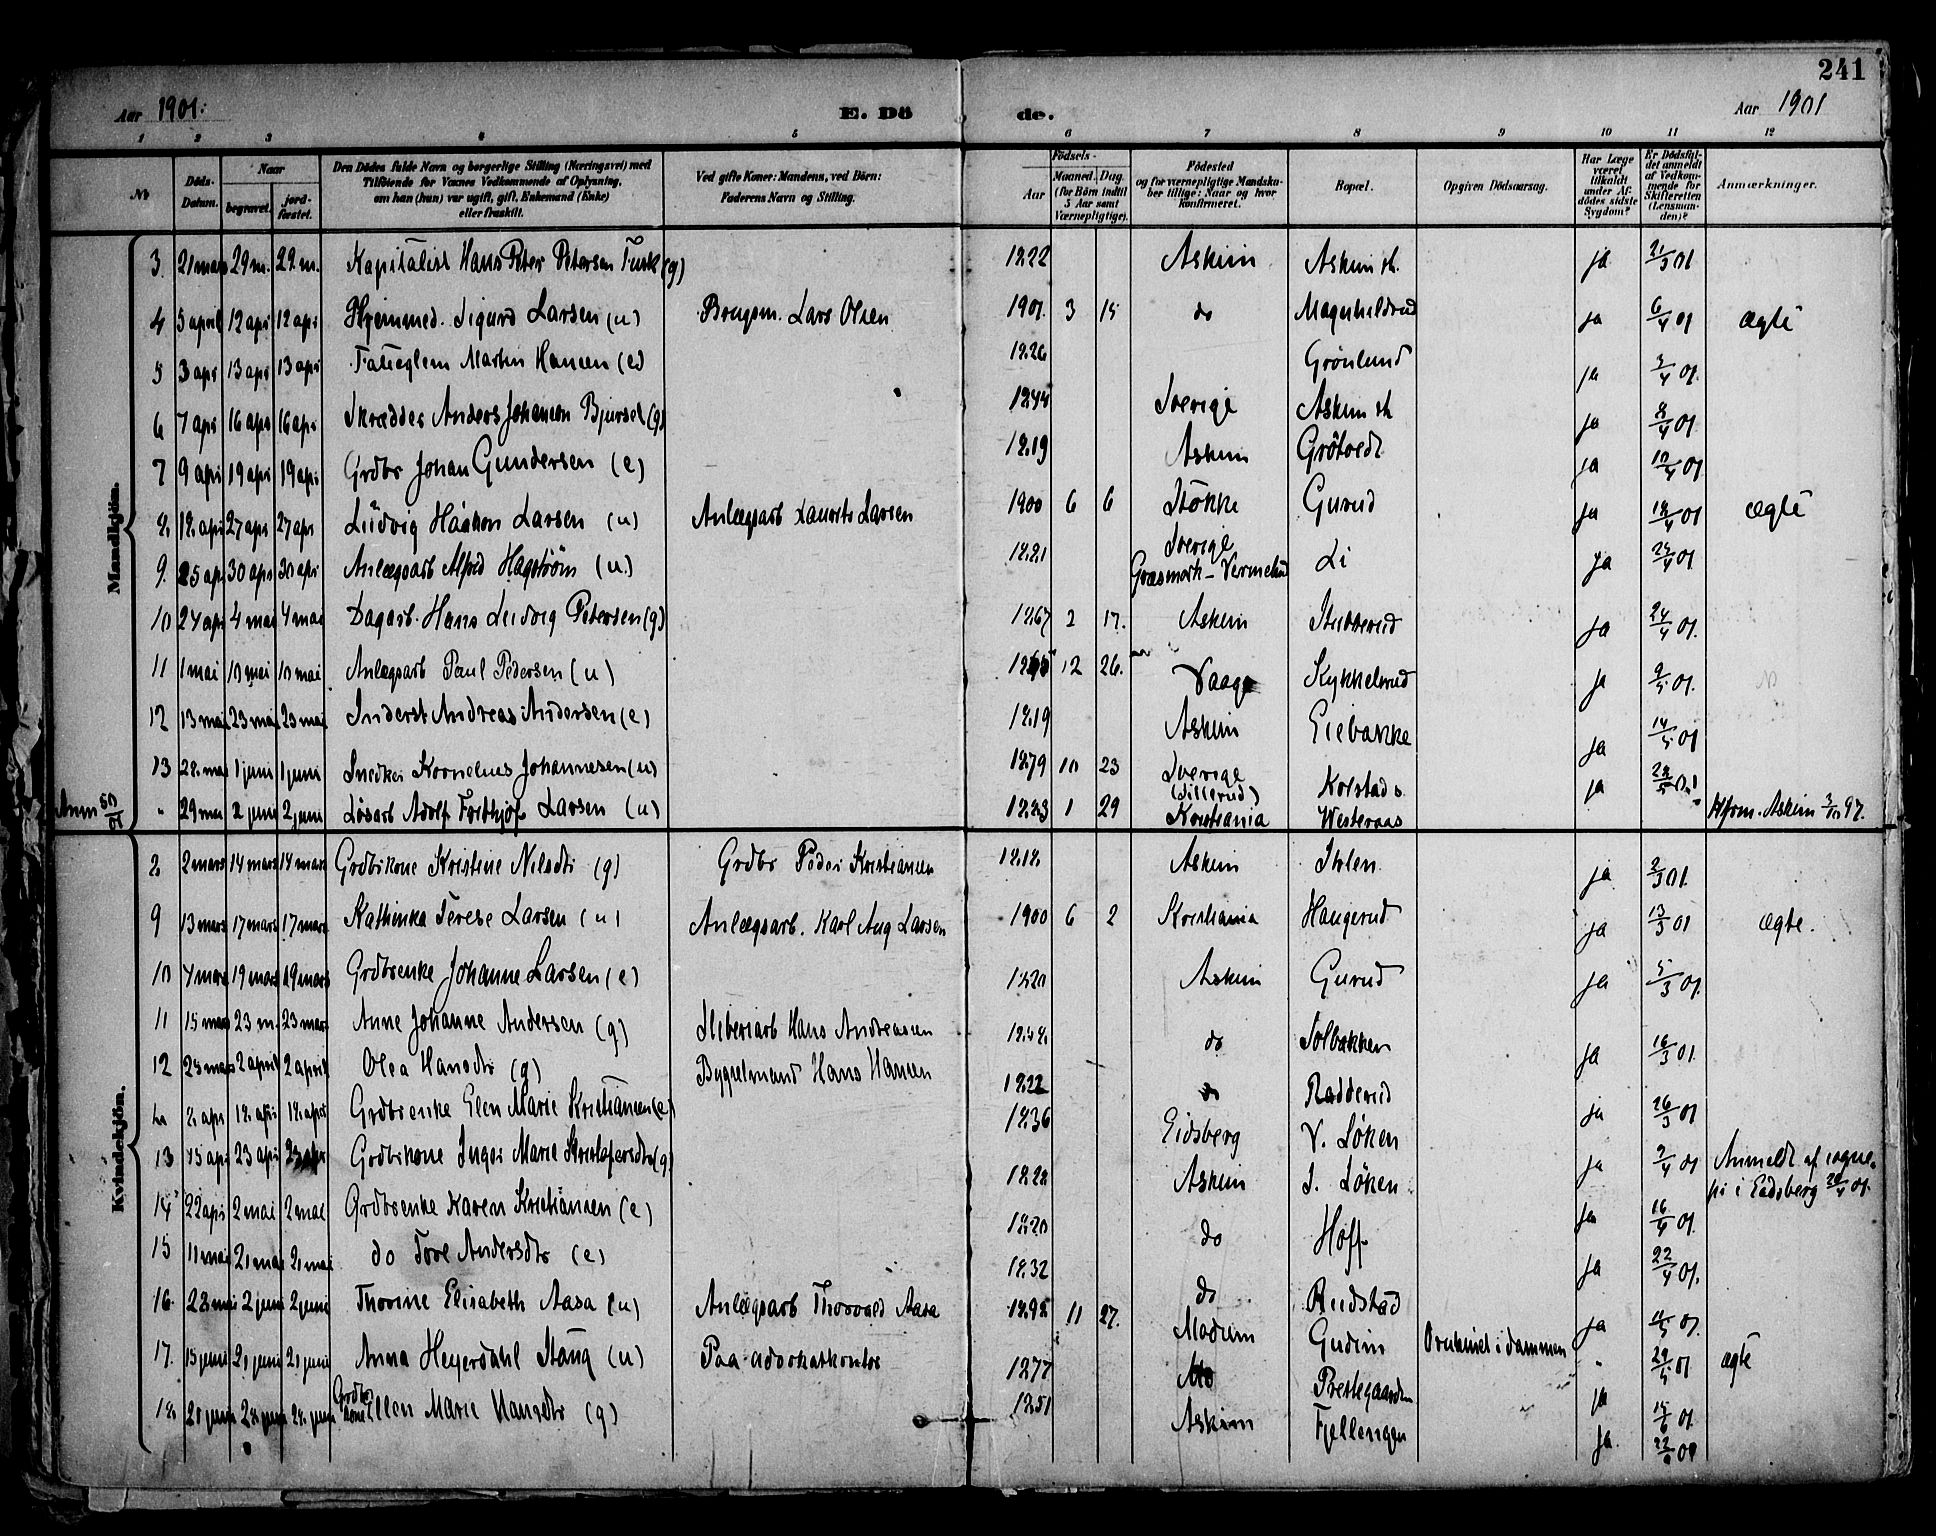 241
Aar 1901.
E. Dö
de.
Aar 1901
1 2 3 4 5 6 7 8 9 10 11 12
No
Döds-Datum.
Naar
begravet.
jord-fæstet.
Den Dödes fulde Navn og borgerlige Stilling (Næringsvei) med
Tilföiende for Voxnes Vedkommende af Oplysning,
om han (hun) var ugift, gift, Enkemand (Enke)
eller fraskilt.
Ved gifte Koner: Mandens, ved Börn:
Faderens Navn og Stilling.
Födsels-
Aar
Maaned. Dag.
(for Börn indtil
5 Aar samt
Værnepligtige).
Födested
og for værnepligtige Mandska-
ber tillige: Naar og hvor
konfirmeret.
Bopæl.
Opgiven Dödsaarsag.
Har Læge
været
tilkaldt
under Af-
dödes sidste
Sygdom?
Er Dödsfal-
det anmeldt
af Vedkom-
mende for
Skifteretten
(Lensman-
den)?
Anmærkninger.
Mandkjön.
3 21 mars 29 m. 29 m. Kapitalist Hans Peter Petersen Fusk (g) 1822 Askim Askim st. ja 21/3 01
4 5 april 12 apr 12 apr Hjemmed. Sigurd Larsen (u) Brugsm. Lars Olsen 1901. 3 15 do Magnhildrud ja 6/4 01 ægte
5 3 apr 13 apr 13 apr Fattiglem Martin Hansen (e) 1826 Grönlund ja 3/4 01.
6 7 apr 16 apr 16 apr Skrædder Anders Johanson Bjursel (g) 1844 Sverige Askim st ja 8/4 01
7 9 apr 19 apr 19 apr Grdbr Johan Gundersen (e) 1819 Askim Grötvedt ja 10/4 01
8. 18. apr 27 apr 27 apr Ludvig Håkon Larsen (u) Anlægsarb Laurits Larsen 1900 6 6 Stokke Gurud ja 18/4 01 ægte
9. 25 apr 30 apr 30 apr Anlægsarb Alfred Hagström (u.) 1881 Sverige Græsmark - Vermelnd Li ja 25/4 01
10 24 apr 4 mai 4 mai Dagarb. Hans Ludvig Petersen (g) 1867 2 17. Askim Stubberud ja 24/4 01.
11 1 mai 10 mai 10 mai Anlægsarb Paul Pedersen (u) 12 26. Vaage Kykkelsrud ja 2/5 01.
12 13 mai 23 mai 23 mai Inderst Andreas Andersen (e) 1819 Askim Eiebakke ja 14/5 01
13 28. mai 1 juni 1 juni Snedker Kornelius Johannesen (u) 1879 10 23 Sverige (Sillerud) Kolstad s. ja 28/5 01
Anm " 29 mai 2 juni 2 juni Lösarb Adolf Fridthjof Larsen (u) 1883 1 29 Kristiania Westeraas " Kfrm. Askim 3/10 97.
Kvindekjön.
8 2 mars 14 mars 14 mars Grdbrkone Kristine Nilsdtr (g) Grdbr Peder Kristiansen 1818. Askim Ihlen ja 2/3 01.
9 13 mars 17 mars 17 mars Kathinka Terese Larsen (u) Anlægsarb. Karl Aug Larsen 1900 6 2 Kristiania Haugerud ja 13/3 01 ægte.
10 4 mars 19 mars 19 mars Grdbrenke Johanne Larsen (e) 1820 Askim Gurud ja 5/3 01.
11 15 mars 23 m. 23 mars Anne Johanne Andersen (g) Sliberiarb Hans Andreassen 1848. do Solbakken ja 16/3 01.
12 25 mars 2 april 2 april Olea Hansdtr (g) Bygselmand Hans Hansen 1822 do Radderud ja 26/3 01
8. apr 18. apr 18. apr Grdbrenke Elen Marie Kristiansen (e) 1836 Eidsberg V. Löken ja 9/4 01 Anmeldt af sogne-
pr i Eidsberg 20/4 01.
13 15 apr 23 apr 23 apr Grdbrkone Inger Marie Kristofersdtr (g) 1828 Askim S. Löken ja 16/4 01.
14 22 apr 2 mai 2 mai Grdbrenke Karen Kristiansen (e) 1820 do Hoff ja 22/4 01.
15 11 mai 21 mai 21 mai do Tore Andersdtr (e) 1832 do Rudstad ja 11/5 01.
16. 28 mai 2 juni 2 juni Thorine Elisabeth Aasa (u) Anlægsarb Thorvald Aasa 1898 11 27. Modum Gudim Druknet i dammen " 29/5 01 ægte
17. 15 juni 21 juni 21 juni Anna Heyerdahl Stang (u) Paa advokatkontor 1877 Mo Prestegaarden ja 15/6 01.
18. 21 juni 28 juni 28. juni Grdbrkone Ellen Marie Hansdtr (g) 1851 Askim Fjellengen ja 22/6 01